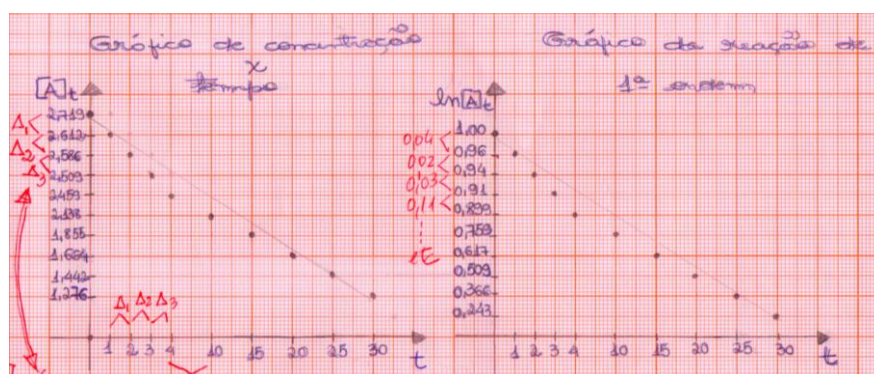 Gráfico de concentração
x
tempo
[A]t
2,719
2,612
2,586
2,509
2,459
2,138
1,855
1,664
1,442
1,276
Δ1
Δ2
Δ3
Δ1 Δ2 Δ3
1 2 3 4 10 15 20 25 30 t
Gráfico da reação de
1ª ordem
ln[A]t
1,00
0,96
0,94
0,91
0,899
0,759
0,617
0,509
0,366
0,243
0,04
0,02
0,03
0,11
1 2 3 4 10 15 20 25 30 t